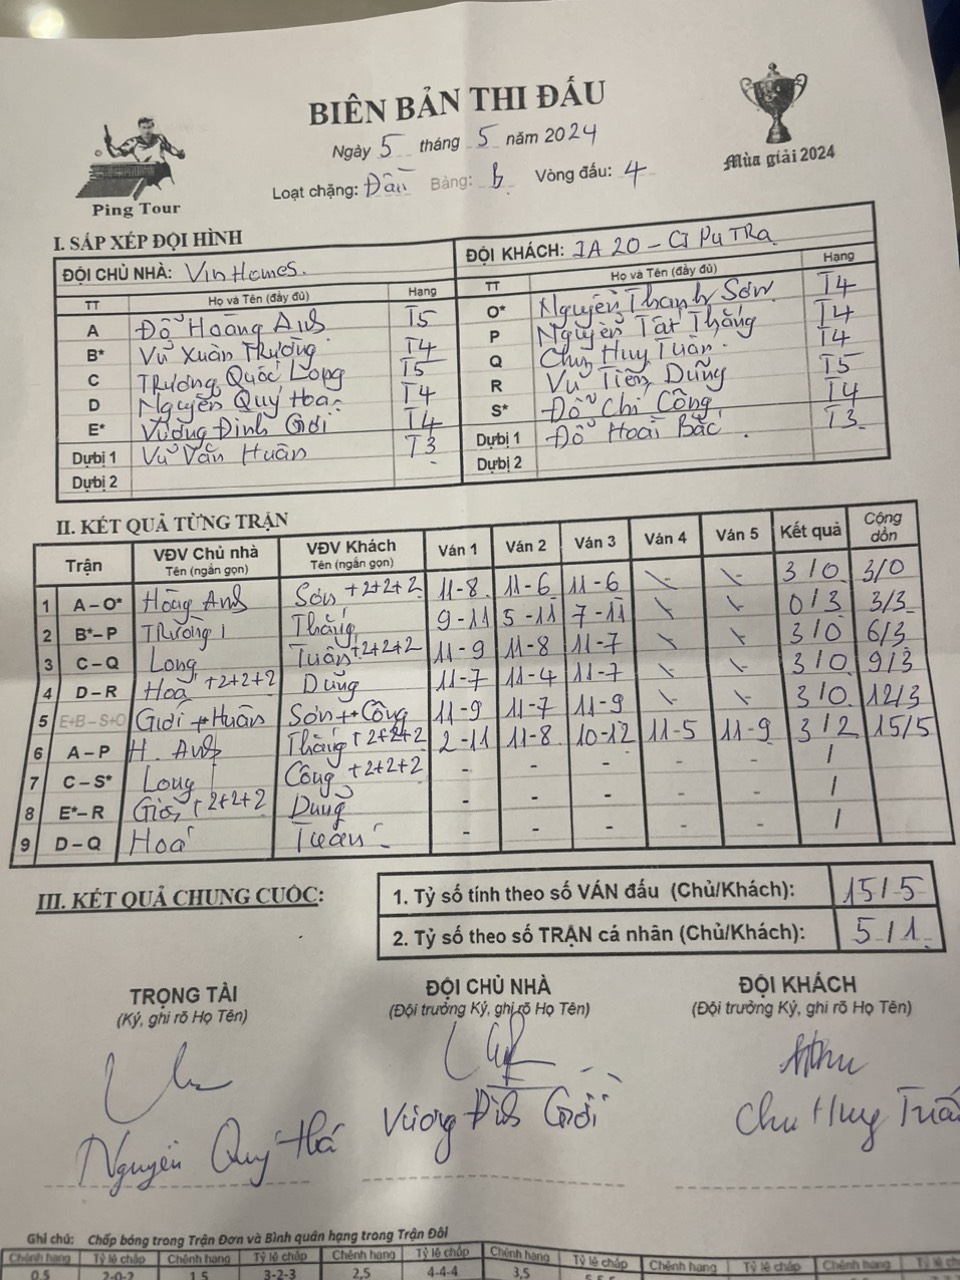 BIÊN BẢN THI ĐẤU
Ngày 5 tháng 5 năm 2024
Loạt chặng: Đầu Bảng: b Vòng đấu: 4
Ping Tour
Mùa giải 2024
I. SẮP XẾP ĐỘI HÌNH
ĐỘI CHỦ NHÀ: VinHomes.
TT Họ và Tên (đầy đủ) Hạng
A Đỗ Hoàng Anh T5
B* Vũ Xuân Trường T4
C Trương Quốc Long T5
D Nguyễn Quý Hoà T4
E* Vương Đình Giới T4
Dựbị 1 Vũ Văn Huân T3
Dựbị 2
ĐỘI KHÁCH: IA20 - CI PUTRA
TT Họ và Tên (đầy đủ) Hạng
O* Nguyễn Thanh Sơn T4
P Nguyễn Tất Thắng T4
Q Chu Huy Tuân T4
R Vũ Tiến Dũng T5
S* Đỗ Chí Công T4
Dựbị 1 Đỗ Hoài Bắc T3
Dựbị 2
II. KẾT QUẢ TỪNG TRẬN
Trận VĐV Chủ nhà Tên (ngắn gọn) VĐV Khách Tên (ngắn gọn) Ván 1 Ván 2 Ván 3 Ván 4 Ván 5 Kết quả Cộng dồn
1 A – O* Hoàng Anh Sơn +2+2+2 11-8 11-6 11-6 3/0 3/0
2 B*– P Trường Thắng 9-11 5-11 7-11 0/3 3/3
3 C – Q Long Tuân +2+2+2 11-9 11-8 11-7 3/0 6/3
4 D – R Hoà +2+2+2 Dũng 11-7 11-4 11-7 3/0 9/3
5 E+B – S+O Giới + Huân Sơn + Công 11-9 11-7 11-9 3/0 12/3
6 A – P H. Anh Thắng +2+2+2 2-11 11-8 10-12 11-5 11-9 3/2 15/5
7 C – S* Long Công +2+2+2 - - - - - /
8 E*– R Giới +2+2+2 Dũng - - - - - /
9 D – Q Hoà Tuân - - - - - /
III. KẾT QUẢ CHUNG CUỘC:
1. Tỷ số tính theo số VÁN đấu (Chủ/Khách): 15/5
2. Tỷ số theo số TRẬN cá nhân (Chủ/Khách): 5/1
TRỌNG TÀI
(Ký, ghi rõ Họ Tên)
Nguyễn Quý Hoà
ĐỘI CHỦ NHÀ
(Đội trưởng Ký, ghi rõ Họ Tên)
Vương Đình Giới
ĐỘI KHÁCH
(Đội trưởng Ký, ghi rõ Họ Tên)
Chu Huy Tuân
Ghi chú: Chấp bóng trong Trận Đơn và Bình quân hạng trong Trận Đôi
Chênh hạng Tỷ lệ chấp Chênh hạng Tỷ lệ chấp Chênh hạng Tỷ lệ chấp Chênh hạng Tỷ lệ chấp Chênh hạng Tỷ lệ chấp Chênh hạng
0,5 2-0-2 1,5 3-2-3 2,5 4-4-4 3,5